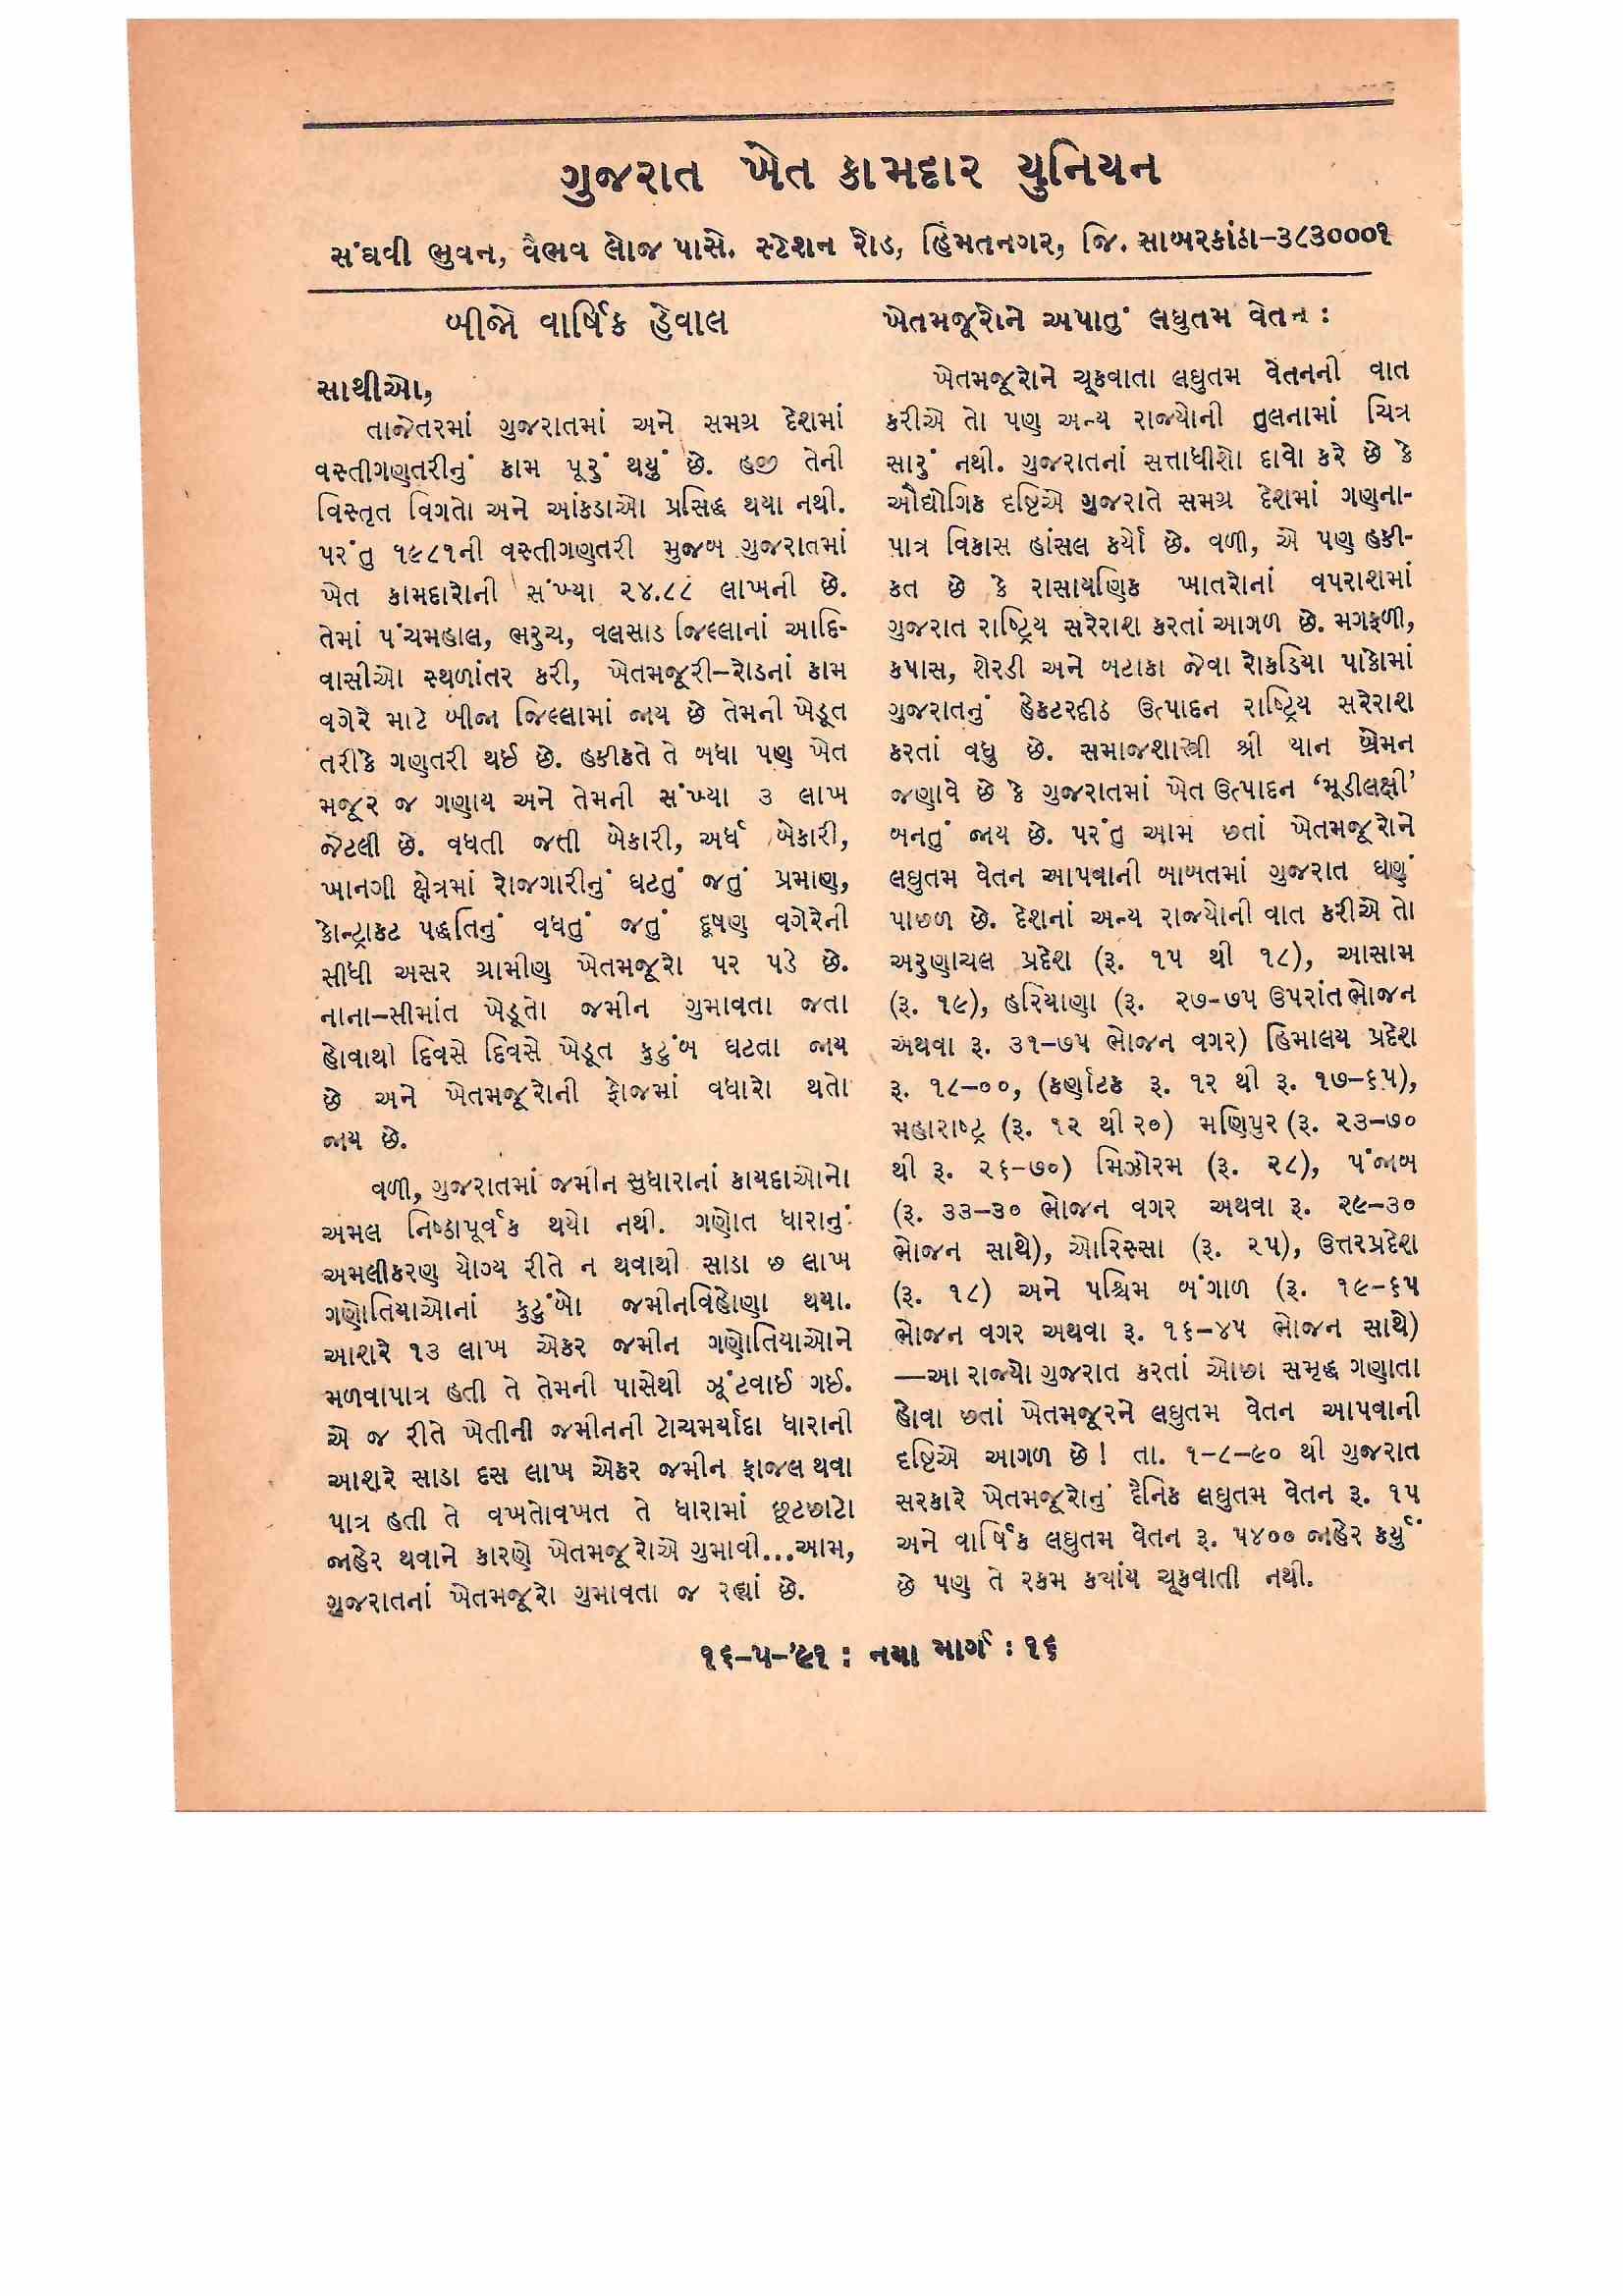 ગુજરાત ખેત કામદાર યુનિયન
સંઘવી ભુવન, વૈભવ લોજ પાસે. સ્ટેશન રોડ, હિંમતનગર, જિ. સાબરકાંઠા-૩૮૩૦૦૦૧
બીજો વાર્ષિક હેવાલ
સાથીઓ,
તાજેતરમાં ગુજરાતમાં અને સમગ્ર દેશમાં
વસ્તીગણતરીનું કામ પૂરું થયું છે. હજી તેની
વિસ્તૃત વિગતો અને આંકડાઓ પ્રસિદ્ધ થયા નથી.
પરંતુ ૧૯૮૧ની વસ્તીગણતરી મુજબ ગુજરાતમાં
ખેત કામદારોની સંખ્યા ૨૪.૮૮ લાખની છે.
તેમાં પંચમહાલ, ભરુચ, વલસાડ જિલ્લાનાં આદિ-
વાસીઓ સ્થળાંતર કરી, ખેતમજૂરી-રોડનાં કામ
વગેરે માટે બીજા જિલ્લામાં જાય છે તેમની ખેડૂત
તરીકે ગણતરી થઈ છે. હકીકતે તે બધા પણ ખેત
મજૂર જ ગણાય અને તેમની સંખ્યા ૩ લાખ
જેટલી છે. વધતી જતી બેકારી, અર્ધ બેકારી,
ખાનગી ક્ષેત્રમાં રોજગારીનું ઘટતું જતું પ્રમાણ,
કોન્ટ્રાકટ પદ્ધતિનું વધતું જતું દૂષણ વગેરેની
સીધી અસર ગ્રામીણ ખેતમજૂરો પર પડે છે.
નાના-સીમાંત ખેડૂતો જમીન ગુમાવતા જતા
હોવાથી દિવસે દિવસે ખેડૂત કુટુંબ ઘટતા જાય
છે અને ખેતમજૂરોની ફોજમાં વધારો થતો
જાય છે.
વળી, ગુજરાતમાં જમીન સુધારાનાં કાયદાઓનો
અમલ નિષ્ઠાપૂર્વક થયો નથી. ગણોત ધારાનું
અમલીકરણ યોગ્ય રીતે ન થવાથી સાડા છ લાખ
ગણોતિયાઓનાં કુટુંબો જમીનવિહોણા થયા.
આશરે ૧૩ લાખ એકર જમીન ગણોતિયાઓને
મળવાપાત્ર હતી તે તેમની પાસેથી ઝૂંટવાઈ ગઈ.
એ જ રીતે ખેતીની જમીનની ટોચમર્યાદા ધારાની
આશરે સાડા દસ લાખ એકર જમીન ફાજલ થવા
પાત્ર હતી તે વખતોવખત તે ધારામાં છૂટછાટો
જાહેર થવાને કારણે ખેતમજૂરોએ ગુમાવી...આમ,
ગુજરાતનાં ખેતમજૂરો ગુમાવતા જ રહ્યાં છે.
ખેતમજૂરોને અપાતું લઘુતમ વેતન :
ખેતમજૂરોને ચૂકવાતા લઘુતમ વેતનની વાત
કરીએ તો પણ અન્ય રાજ્યોની તુલનામાં ચિત્ર
સારું નથી. ગુજરાતનાં સત્તાધીશો દાવો કરે છે કે
ઔદ્યોગિક દૃષ્ટિએ ગુજરાતે સમગ્ર દેશમાં ગણના-
પાત્ર વિકાસ હાંસલ કર્યો છે. વળી, એ પણ હકી-
કત છે કે રાસાયણિક ખાતરોનાં વપરાશમાં
ગુજરાત રાષ્ટ્રિય સરેરાશ કરતાં આગળ છે. મગફળી,
કપાસ, શેરડી અને બટાકા જેવા રોકડિયા પાકોમાં
ગુજરાતનું હેકટરદીઠ ઉત્પાદન રાષ્ટ્રિય સરેરાશ
કરતાં વધુ છે. સમાજશાસ્ત્રી શ્રી યાન બ્રેમન
જણાવે છે કે ગુજરાતમાં ખેત ઉત્પાદન ‘મૂડીલક્ષી’
બનતું જાય છે. પરંતુ આમ છતાં ખેતમજૂરોને
લઘુતમ વેતન આપવાની બાબતમાં ગુજરાત ઘણું
પાછળ છે. દેશનાં અન્ય રાજયોની વાત કરીએ તો
અરુણાચલ પ્રદેશ (રૂ. ૧૫ થી ૧૮), આસામ
(રૂ. ૧૯), હરિયાણા (રૂ. ૨૭-૭૫ ઉપરાંત ભોજન
અથવા રૂ. ૩૧-૭૫ ભોજન વગર) હિમાલય પ્રદેશ
રૂ. ૧૮-૦૦, (કર્ણાટક રૂ. ૧૨ થી રૂ. ૧૭-૬૫),
મહારાષ્ટ્ર (રૂ. ૧૨ થી ૨૦) મણિપુર (રૂ. ૨૩-૭૦
થી રૂ. ૨૬-૭૦) મિઝોરમ (રૂ. ૨૮), પંજાબ
(રૂ. ૩૩-૩૦ ભોજન વગર અથવા રૂ. ૨૯-૩૦
ભોજન સાથે), ઓરિસ્સા (રૂ. ૨૫), ઉત્તરપ્રદેશ
(રૂ. ૧૮) અને પશ્ચિમ બંગાળ (રૂ. ૧૯-૬૫
ભોજન વગર અથવા રૂ. ૧૬-૪૫ ભોજન સાથે)
—આ રાજ્યો ગુજરાત કરતાં ઓછા સમૃદ્ધ ગણાતા
હોવા છતાં ખેતમજૂરને લઘુતમ વેતન આપવાની
દૃષ્ટિએ આગળ છે! તા. ૧-૮-૯૦ થી ગુજરાત
સરકારે ખેતમજૂરોનું દૈનિક લઘુતમ વેતન રૂ. ૧૫
અને વાર્ષિક લઘુતમ વેતન રૂ. ૫૪૦૦ જાહેર કર્યું
છે પણ તે રકમ કયાંય ચૂકવાતી નથી.
૧૬-૫-'૯૧ : નયા માર્ગ : ૧૬